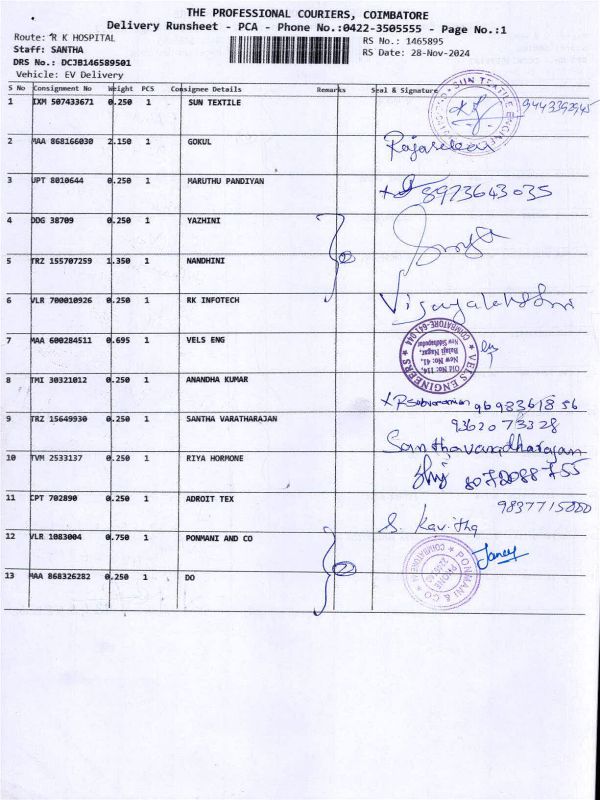 THE PROFESSIONAL COURIERS, COIMBATORE
Delivery Runsheet - PCA - Phone No.:0422-3505555 - Page No.:1
Route: R K HOSPITAL
RS No.: 1465895
Staff: SANTHA
RS Date: 28-Nov-2024
DRS No.: DCJB146589501
Vehicle: EV Delivery
S No Consignment No Weight PCS Consignee Details Remarks Seal & Signature
1 IXM 507433671 0.250 1 SUN TEXTILE
2 MAA 868166030 2.150 1 GOKUL Rajasekar
3 JPT 8010644 0.250 1 MARUTHU PANDIYAN 8973643035
4 DDG 38709 0.250 1 YAZHINI
5 TRZ 155707259 1.350 1 NANDHINI
6 VLR 700010926 0.250 1 RK INFOTECH Vijayalakshmi
7 MAA 600284511 0.695 1 VELS ENG
★ VELS ENGINEERS ★ COIMBATORE-641 044
Old No: 114,
New No: 41,
Balaji Nagar,
New Siddhapudur
8 TMI 30321012 0.250 1 ANANDHA KUMAR
9698361856
9362073328
9 TRZ 15649930 0.250 1 SANTHA VARATHARAJAN Santhavaradharajan
10 TVM 2533137 0.250 1 RIYA HORMONE 8072088755
11 CPT 702890 0.250 1 ADROIT TEX 9837715000
S. Kavitha
12 VLR 1083004 0.750 1 PONMANI AND CO
★ PONMANI & CO ★ COIMBATORE
PHONE
13 MAA 868326282 0.250 1 DO